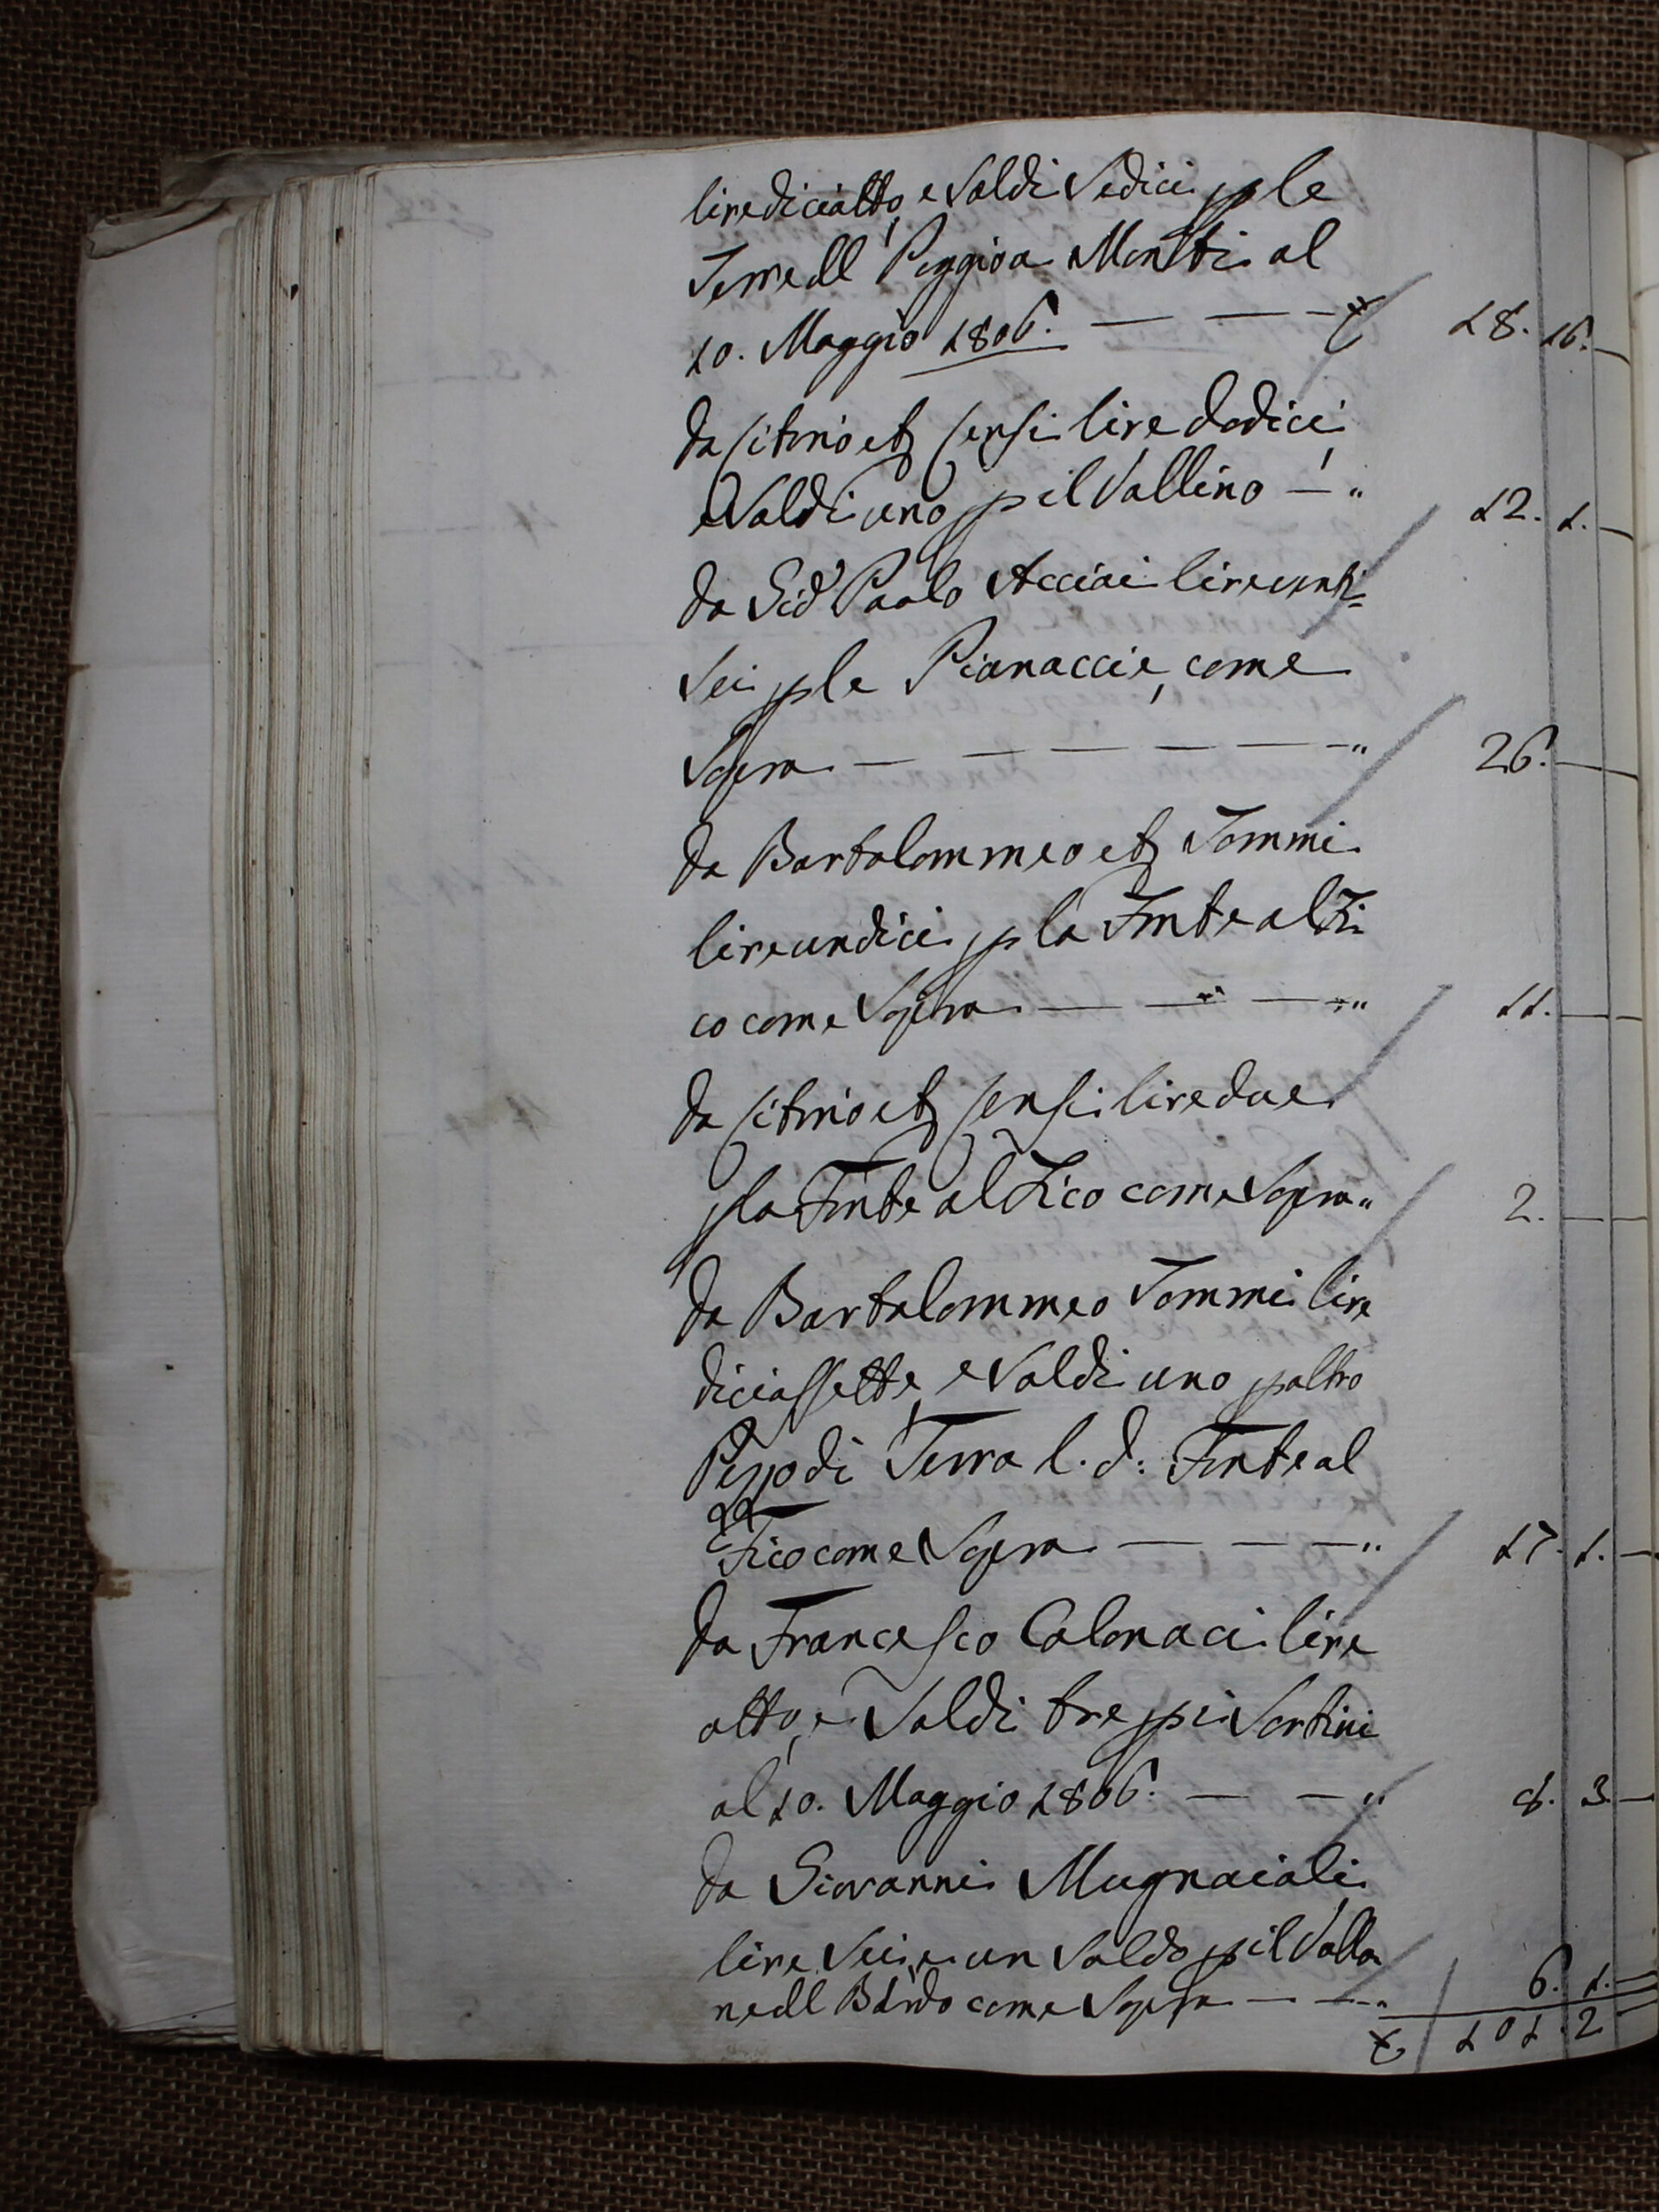 lire diciotto, e Soldi Sedici p le
Terre dll Poggio a Montti al
10. Maggio 1806. — — — £ 18. 16. —
da Citerio et Censi lire dodici,
e Soldi uno p il Vallino — " 12. 1. —
da Gio Paolo Acciai lire venti=
Sei p le Pianaccie, come
Sopra — — — — — — " 26. — —
da Bartolommeo et Tommi
lire undici p la Fonte al Fi
co come Sopra — — — — " 11. — —
da Citerio et Censi lire due
p la Fonte al Fico come Sopra " 2. — —
da Bartolommeo Tommi lire
diciassette, e Soldi uno p altro
Pezzo di Terra l. d: Fonte al
Fico come Sopra — — — " 17. 1. —
da Francesco Calonaci lire
otto, e Soldi tre p i Sortini
al 10. Maggio 1806. — — " 8. 3. —
da Giovanni Mugnaiali
lire Sei, e un Soldo p il Vallo
ne dll B come Sopra — — " 6. 1. —
£ 101. 2 —